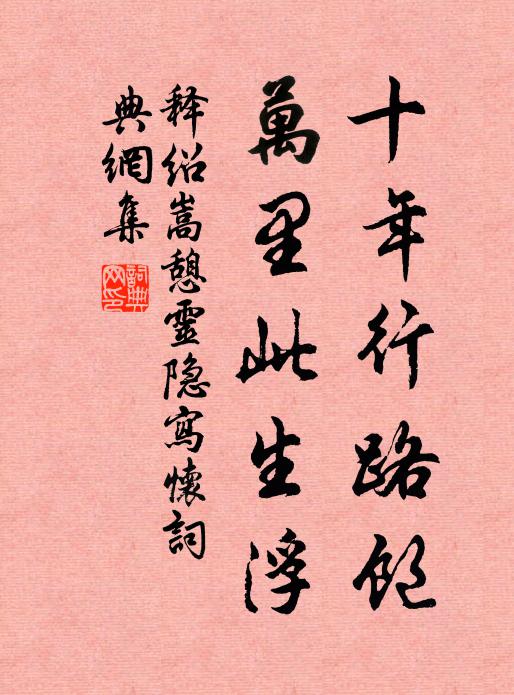 十年行路飽
萬里此生浮
释绍嵩憩靈隐寫懷詞
典網集
詞典
网印